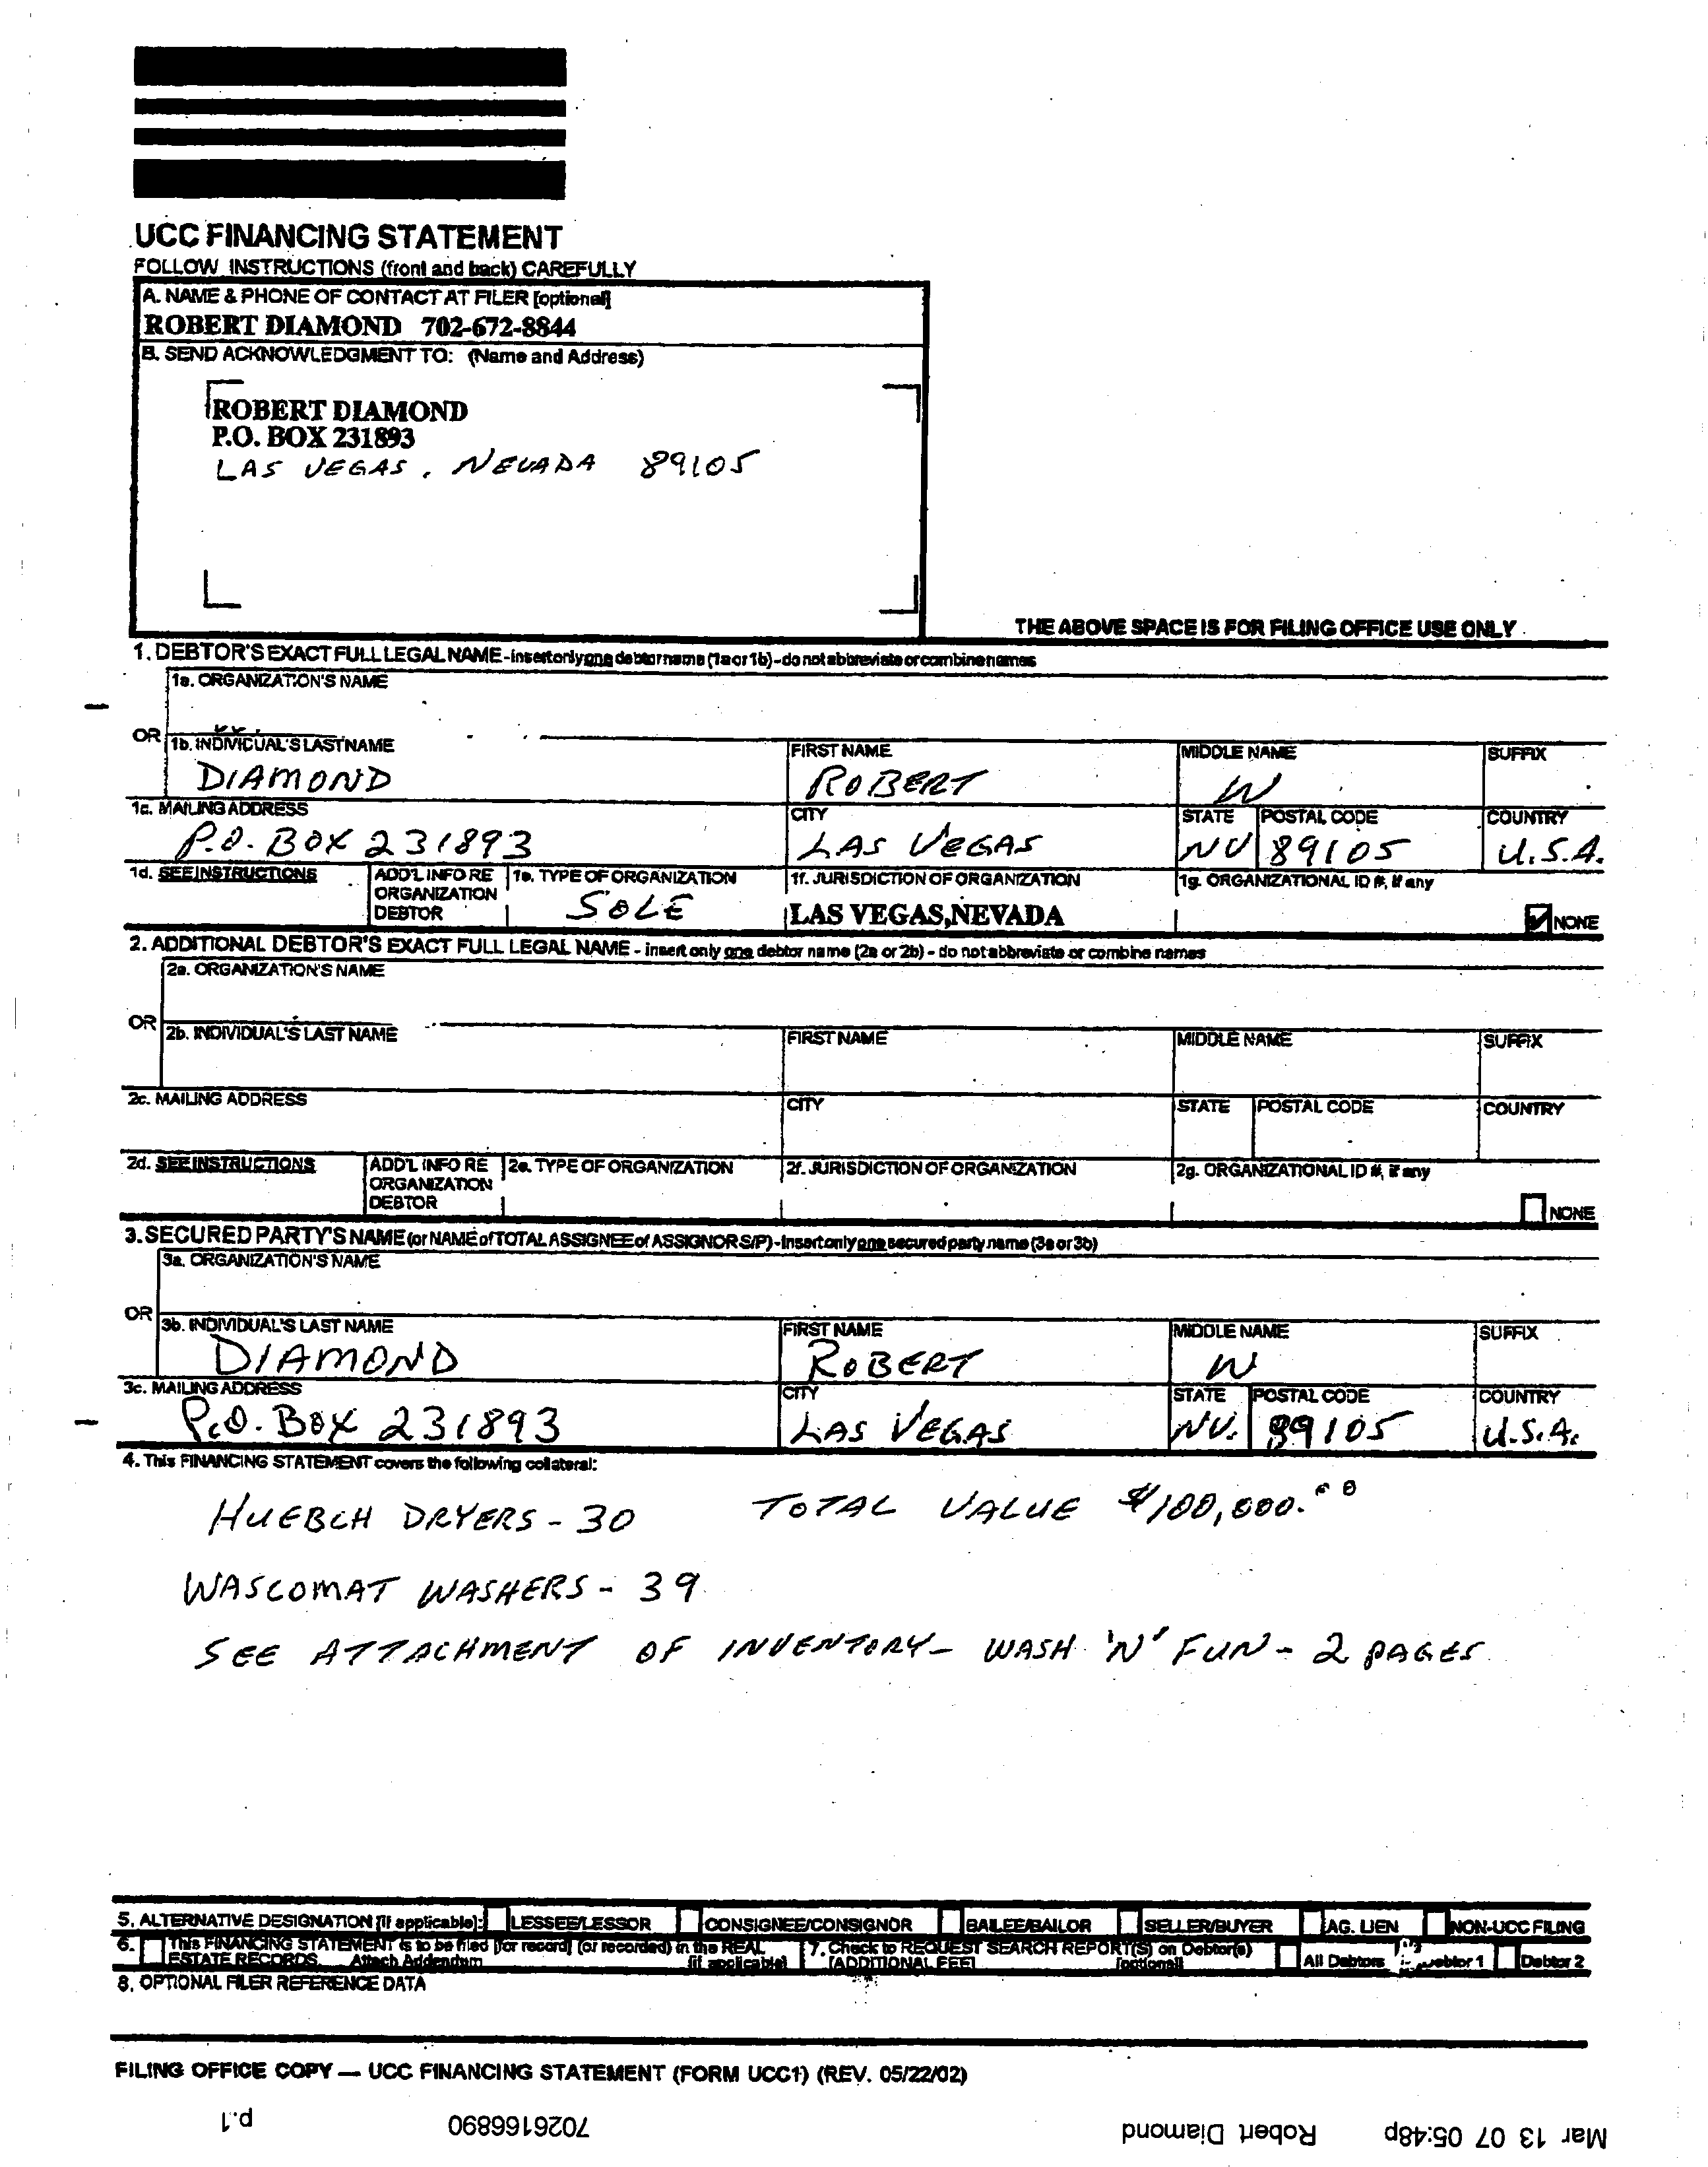 UCC FINANCING STATEMENT
FOLLOW INSTRUCTIONS (front and back) CAREFULLY
A. NAME & PHONE OF CONTACT AT FILER [optional]
ROBERT DIAMOND 702-672-8844
B. SEND ACKNOWLEDGMENT TO: (Name and Address)
ROBERT DIAMOND
P.O. BOX 231893
LAS VEGAS, NEVADA 89105
THE ABOVE SPACE IS FOR FILING OFFICE USE ONLY
1. DEBTOR'S EXACT FULL LEGAL NAME - insert only one debtor name (1a or 1b) - do not abbreviate or combine names
1a. ORGANIZATION'S NAME
OR
1b. INDIVIDUAL'S LAST NAME FIRST NAME MIDDLE NAME SUFFIX
DIAMOND ROBERT W
1c. MAILING ADDRESS CITY STATE POSTAL CODE COUNTRY
P.O. BOX 231893 LAS VEGAS NV 89105 U.S.A.
1d. SEE INSTRUCTIONS ADD'L INFO RE ORGANIZATION DEBTOR 1e. TYPE OF ORGANIZATION 1f. JURISDICTION OF ORGANIZATION 1g. ORGANIZATIONAL ID #, if any
SOLE LAS VEGAS,NEVADA NONE
2. ADDITIONAL DEBTOR'S EXACT FULL LEGAL NAME - insert only one debtor name (2a or 2b) - do not abbreviate or combine names
2a. ORGANIZATION'S NAME
OR
2b. INDIVIDUAL'S LAST NAME FIRST NAME MIDDLE NAME SUFFIX
2c. MAILING ADDRESS CITY STATE POSTAL CODE COUNTRY
2d. SEE INSTRUCTIONS ADD'L INFO RE ORGANIZATION DEBTOR 2e. TYPE OF ORGANIZATION 2f. JURISDICTION OF ORGANIZATION 2g. ORGANIZATIONAL ID #, if any
NONE
3. SECURED PARTY'S NAME (or NAME of TOTAL ASSIGNEE of ASSIGNOR S/P) - insert only one secured party name (3a or 3b)
3a. ORGANIZATION'S NAME
OR
3b. INDIVIDUAL'S LAST NAME FIRST NAME MIDDLE NAME SUFFIX
DIAMOND ROBERT W
3c. MAILING ADDRESS CITY STATE POSTAL CODE COUNTRY
P.O. BOX 231893 LAS VEGAS NV. 89105 U.S.A.
4. This FINANCING STATEMENT covers the following collateral:
HUEBCH DRYERS - 30 TOTAL VALUE $100,000.00
WASCOMAT WASHERS - 39
SEE ATTACHMENT OF INVENTORY - WASH 'N' FUN - 2 PAGES
5. ALTERNATIVE DESIGNATION [if applicable]: LESSEE/LESSOR CONSIGNEE/CONSIGNOR BAILEE/BAILOR SELLER/BUYER AG. LIEN NON-UCC FILING
6. This FINANCING STATEMENT is to be filed [for record] (or recorded) in the REAL 7. Check to REQUEST SEARCH REPORT(S) on Debtor(s)
ESTATE RECORDS. Attach Addendum [if applicable] [ADDITIONAL FEE] [optional] All Debtors Debtor 1 Debtor 2
8. OPTIONAL FILER REFERENCE DATA
FILING OFFICE COPY — UCC FINANCING STATEMENT (FORM UCC1) (REV. 05/22/02)
Mar 13 07 05:48p Robert Diamond 7026166890 p.1